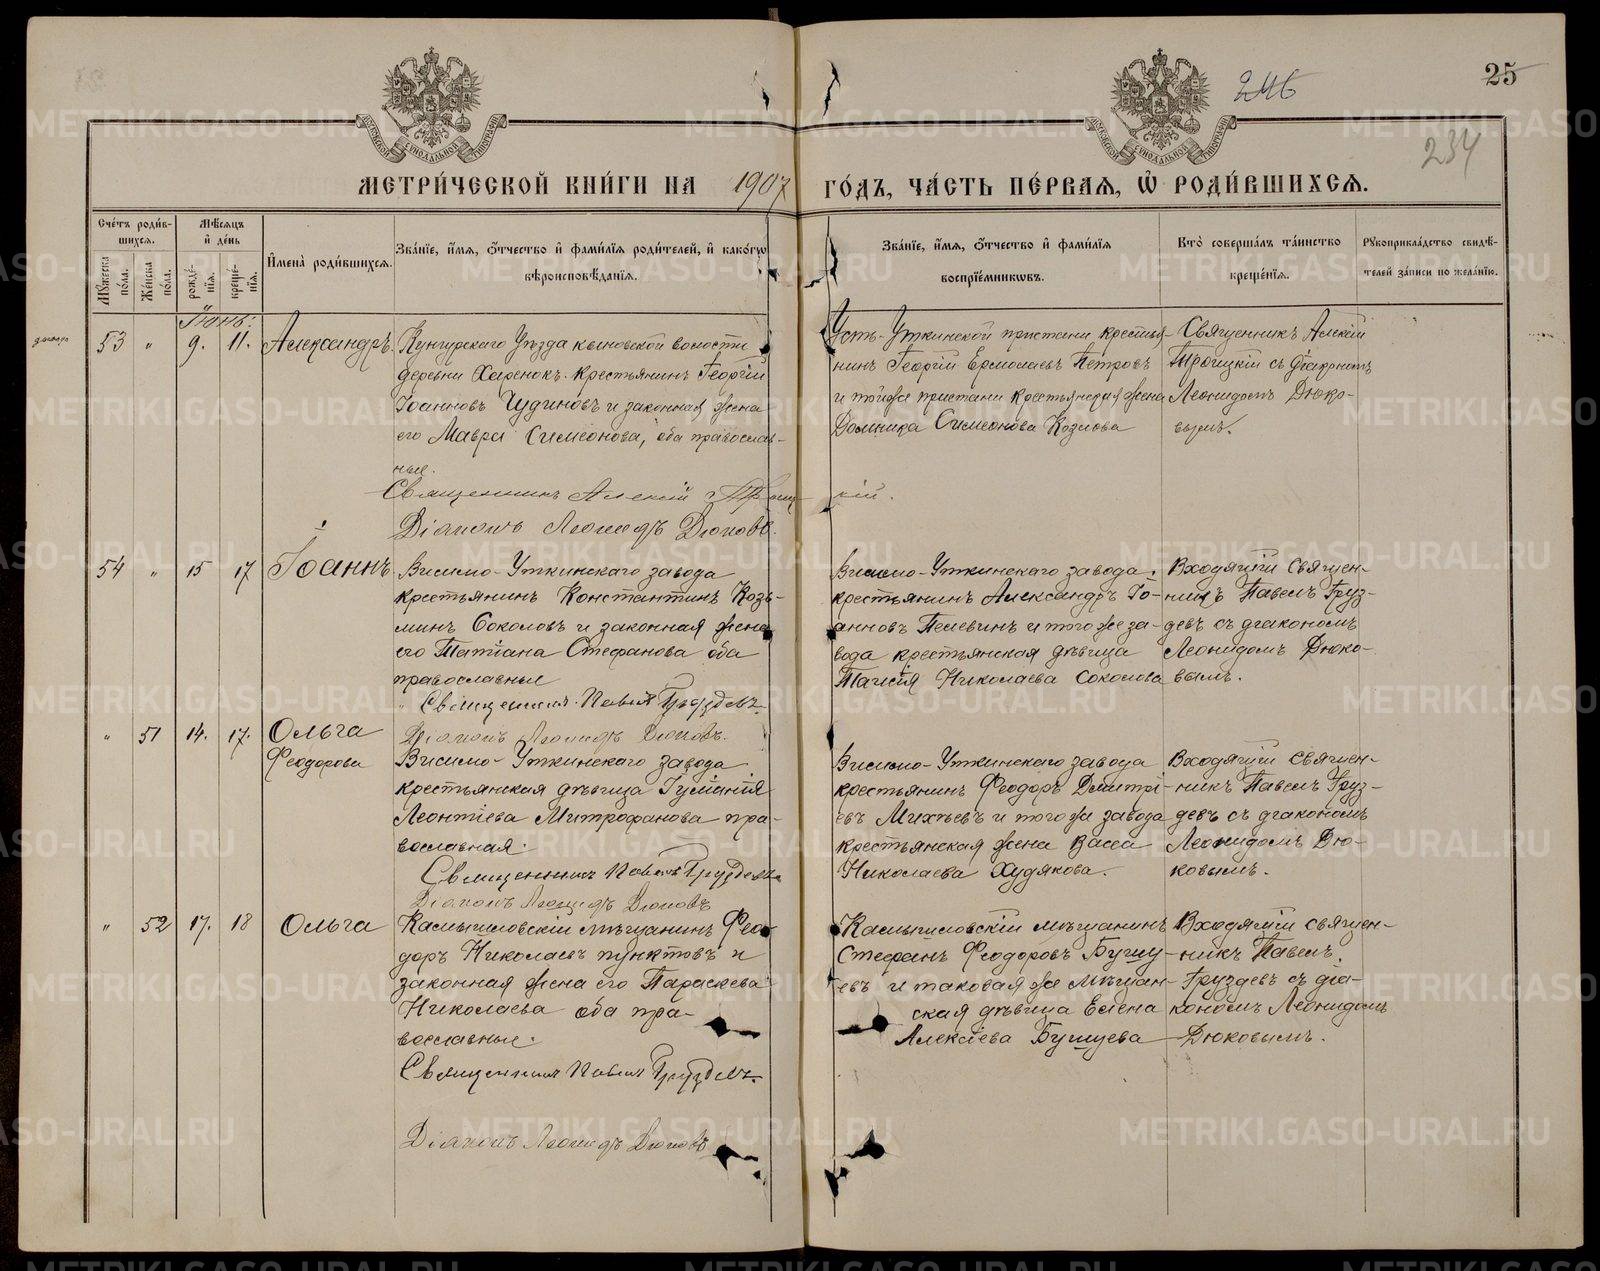 246
25
234
МЕТРИ́ЧЕСКОЙ КНИ́ГИ НА 1907 ГО́ДЪ, ЧА́СТЬ ПЕ́РВАЯ, Ѡ҆ РОДИ́ВШИХСЯ.
Сче́тъ роди́в-
шихся.
Мѣ́сяцъ
и҆ де́нь
Му́жеска по́ла.
Же́нска по́ла.
рожде́-
нїя.
креще́-
нїя.
И҆мена̀ роди́вшихся.
Зва́нїе, и҆́мя, ѻ҆́тчество и҆ фами́лїя роди́телей, и҆ како́гѡ
вѣроисповѣ́данїя.
Зва́нїе, и҆́мя, ѻ҆́тчество и҆ фами́лїя
воспрїе́мниковъ.
Кто̀ соверша́лъ та́инство
креще́нїя.
Рꙋкоприкла́дство свидѣ́-
телей за́писи по жела́нїю.
Іюнь:
53 „ 9. 11. Александръ.
Кунгурскаго Уѣзда кыновской волости
деревни Харенокъ крестьянинъ Георгій
Іоанновъ Чудиновъ и законная жена
его Мавра Симеонова, оба православ-
ные.
Священникъ Алексій Троицкій.
Діаконъ Леонидъ Дюковъ.
Усть-Уткинской пристани крестья-
нинъ Георгій Ермолаевъ Петровъ
и тойже пристани крестьянская жена
Домника Симеонова Козлова
Священникъ Алексій
Троицкій съ діакономъ
Леонидомъ Дюко-
вымъ.
54 „ 15 17 Іоаннъ
Висимо-Уткинскаго завода
крестьянинъ Константинъ Козь-
минъ Соколовъ и законная жена
его Татіана Стефанова оба
православные
Священникъ Павелъ Груздевъ
Діаконъ Леонидъ Дюковъ.
Висимо-Уткинскаго завода
крестьянинъ Александръ Іо-
анновъ Пелевинъ и того же за-
вода крестьянская дѣвица
Таисія Николаева Соколова
Входящій Священ-
никъ Павелъ Груз-
девъ съ діакономъ
Леонидомъ Дюко-
вымъ.
„ 51 14. 17. Ольга
Феодорова
Висимо-Уткинскаго завода
крестьянская дѣвица
Леонтіева Митрофанова пра-
вославная.
Священникъ Павелъ Груздевъ
Діаконъ Леонидъ Дюковъ
Висимо-Уткинскаго завода
крестьянинъ Феодоръ Дмитрі-
евъ Михѣевъ и того же завода
крестьянская жена Васса
Николаева Худякова.
Входящій Священ-
никъ Павелъ Груз-
девъ съ діакономъ
Леонидомъ Дю-
ковымъ.
„ 52 17. 18 Ольга
Камышловскій мѣщанинъ Фео-
доръ Николаевъ Пунктовъ и
законная жена его Параскева
Николаева оба пра-
вославные.
Священникъ Павелъ Груздевъ.
Діаконъ Леонидъ Дюковъ
Камышловскій мѣщанинъ
Стефанъ Феодоровъ Бушу-
евъ и таковая же мѣщан-
ская дѣвица Елена
Алексіева Бушуева
Входящій священ-
никъ Павелъ
Груздевъ съ діа-
кономъ Леонидомъ
Дюковымъ.
METRIKI.GASO-URAL.RU